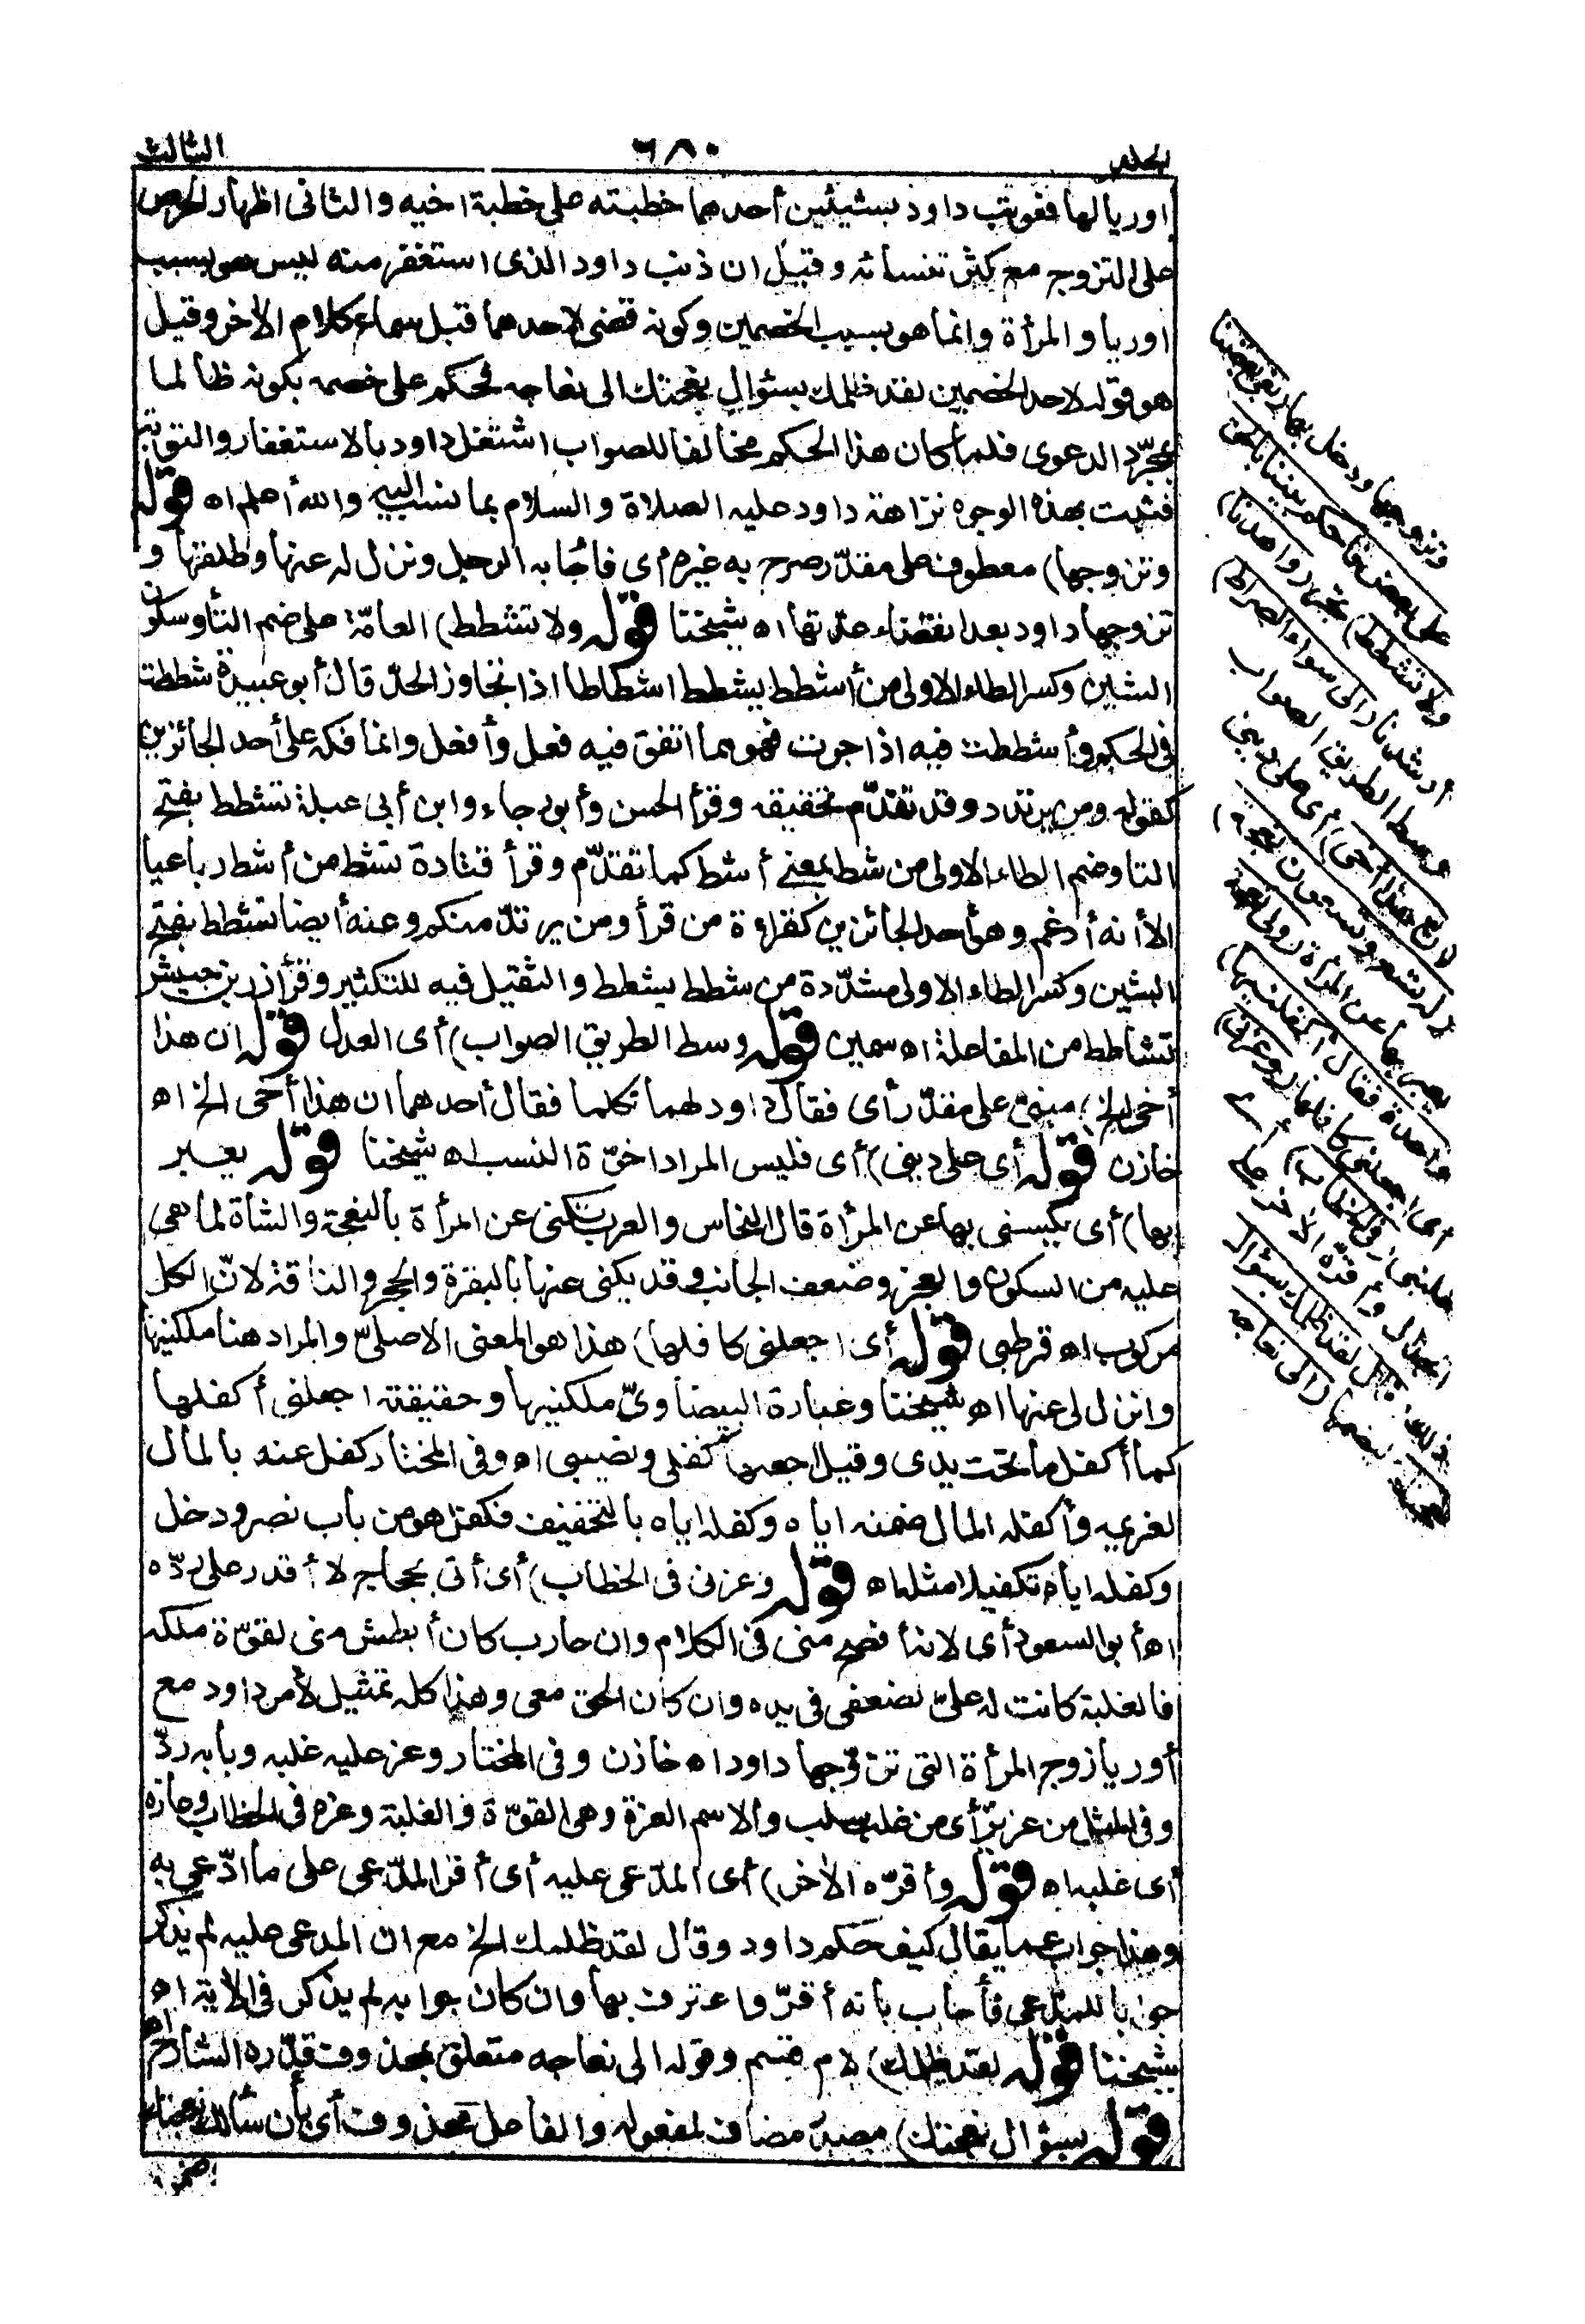 المجلد ٦٨٠ الثالث
اوريا لها فعوتب داود بشيئين أحدهما خطبته على خطبة اخيه والثانى اظهار الحرص
على التزوج مع كثرة نسائه وقيل ان ذنب داود الذى استغفر منه ليس هو بسبب
اوريا والمرأة وانما هو بسبب الخصمين وكونه قضى لاحدهما قبل سماع كلام الأخر وقيل
هو قوله لاحد الخصمين لقد ظلمك بسؤال نعجتك الى نعاجه فحكم على خصمه بكونه ظالما
بمجرّد الدعوى فلما كان هذا الحكم مخالفا للصواب اشتغل داود بالاستغفار والتوبة
فثبت بهذه الوجوه نزاهة داود عليه الصلاة والسلام بما نسب اليه والله أعلم اه قوله
وتزوجها) معطوف على مقدّر صرح به غيره أى فأجابه الرجل ونزل له عنها وطلقها و
تزوجها داود بعد انقضاء عدّتها اه شيخنا قوله ولا تشطط) العامّة على ضم التا وسكون
الشين وكسر الطاء الاولى من أشطط يشطط اشطاطا اذا تجاوز الحدّ قال أبو عبيدة شططت
فى الحكم وأشططت فيه اذا جرت فهو مما اتفق فيه فعل وأفعل وانما فكه على أحد الجائزين
كقوله ومن يرتدد وقد تقدّم تحقيقه وقرأ الحسن وأبو رجاء وابن أبى عبلة تشطط بفتح
التا وضم الطاء الاولى من شط بمعنى أشط كما تقدّم وقرأ قتادة تشط من أشط رباعيا
الا أنه أدغم وهو أحد الجائزين كقراءة من قرأ ومن يرتدّ منكم وعنه أيضا تشطط بفتح
الشين وكسر الطاء الاولى مشدّدة من شطط يشطط والتثقيل فيه للتكثير وقرأ زر بن حبيش
تشاطط من المفاعلة اه سمين قوله وسط الطريق الصواب) أى العدل قوله ان هذا
أخى الخ) مبنى على مقدّر أى فقال داود لهما تكلما فقال أحدهما ان هذا أخى الخ اه
خازن قوله أى على دينى) أى فليس المراد اخوّة النسب اه شيخنا قوله يعبر
بها) أى يكنى بها عن المرأة قال النحاس والعرب تكنى عن المرأة بالنعجة والشاة لما هى
عليه من السكون والعجز وضعف الجانب وقد يكنى عنها بالبقرة والحجر والناقة لانّ الكل
مركوب اه قرطبى قوله أى اجعلنى كافلها) هذا هو المعنى الاصلىّ والمراد هنا ملكنيها
وانزل لى عنها اه شيخنا وعبارة البيضاوىّ ملكنيها وحقيقته اجعلنى أكفلها
كما أكفل ما تحت يدى وقيل اجعلها كفلى ونصيبى اه وفى المختار كفل عنه بالمال
لغريمه وأكفله المال ضمنه اياه وكفله اياه بالتخفيف فكفل هو من باب نصر ودخل
وكفله اياه تكفيلا مثله اه قوله وعزنى فى الخطاب) أى أتى بحجاج لا أقدر على ردّه
اه أبو السعود أى لانه أفصح منى فى الكلام وان حارب كان أبطش منى لقوّة ملكه
فالغلبة كانت له علىّ لضعفى فى يده وان كان الحق معى وهذا كله تمثيل لأمر داود مع
أوريا زوج المرأة التى تزوّجها داود اه خازن وفى المختار وعز عليه غلبه وبابه ردّ
وفى المثل من عز بزّ أى من غلب سلب والاسم العزة وهى القوّة والغلبة وعزه فى الخطاب وعازه
أى غلبه اه قوله وأقرّه الأخر) أى المدّعى عليه أى أقر المدّعى على ما ادّعى به
وهذا جواب عما يقال كيف حكم داود وقال لقد ظلمك الخ مع ان المدعى عليه لم يذكر
جوابا للمدّعى فأجاب بأنه أقرّ واعترف بها وان كان جوابه لم يذكر فى الأية اه
شيخنا قوله لقد ظلمك) لام قسم وقوله الى نعاجه متعلق بمحذوف قدّره الشارح اه
قوله بسؤال نعجتك) مصدر مضاف لمفعوله والفاعل محذوف أى بأن سألك نعجتك
وتزوجها ودخل بها (بغى بعضنا
على بعض فاحكم بيننا بالحق
ولا تشطط) تجر (واهدنا)
أرشدنا (الى سواء الصراط)
وسط الطريق الصواب
(ان هذا أخى) أى على دينى
(له تسع وتسعون نعجة)
يعبر بها عن المرأة (ولى نعجة
واحدة فقال أكفلنيها)
أى اجعلنى كافلها (وعزنى)
غلبنى (فى الخطاب) أى
الجدال وأقرّه الأخر على
ذلك (قال لقد ظلمك بسؤال
نعجتك) ليضمها (الى نعاجه